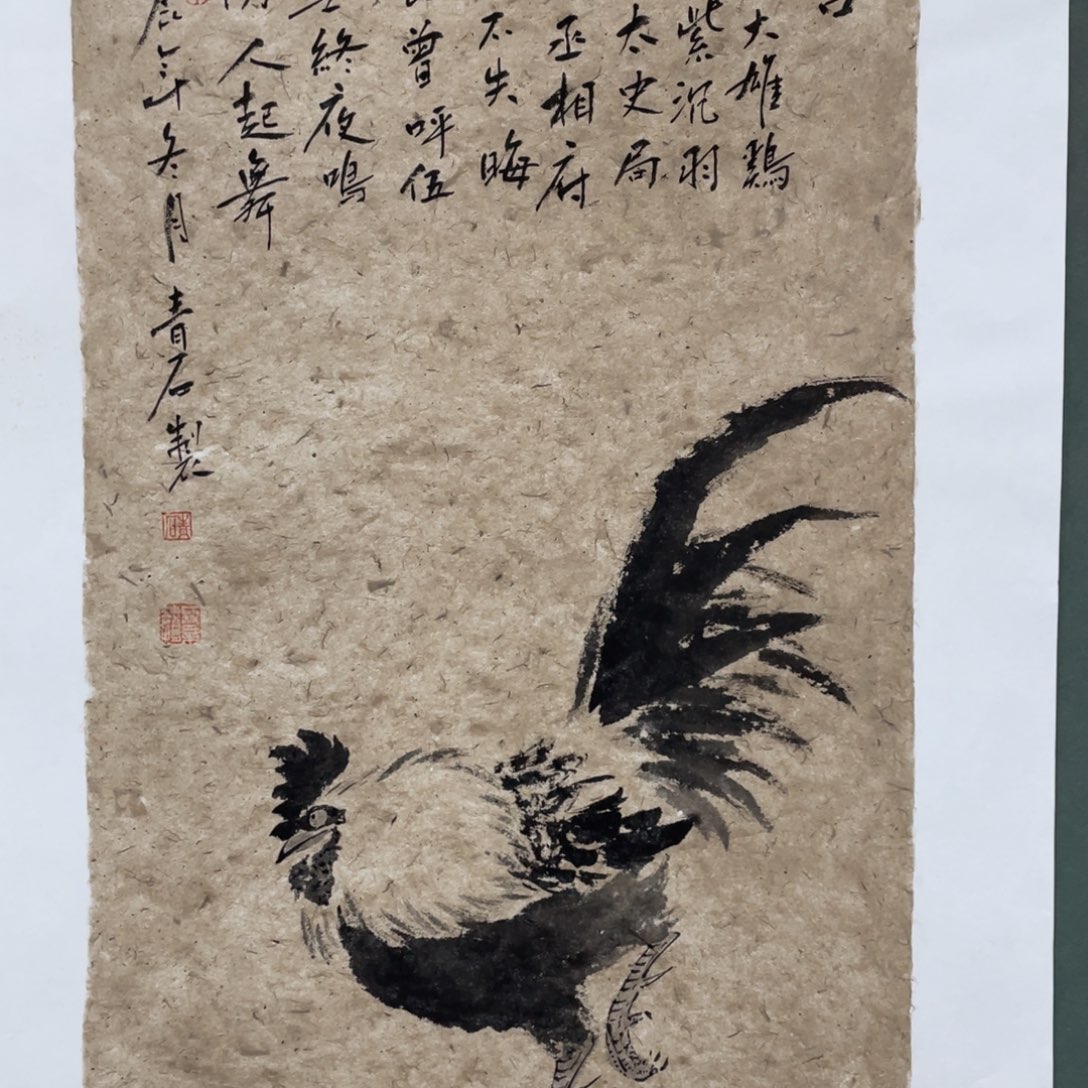 大雄鷄
紫沉羽
太史局
丞相府
不失晦
曾呼伍
終夜鳴
人起舞
辰年冬月青石製